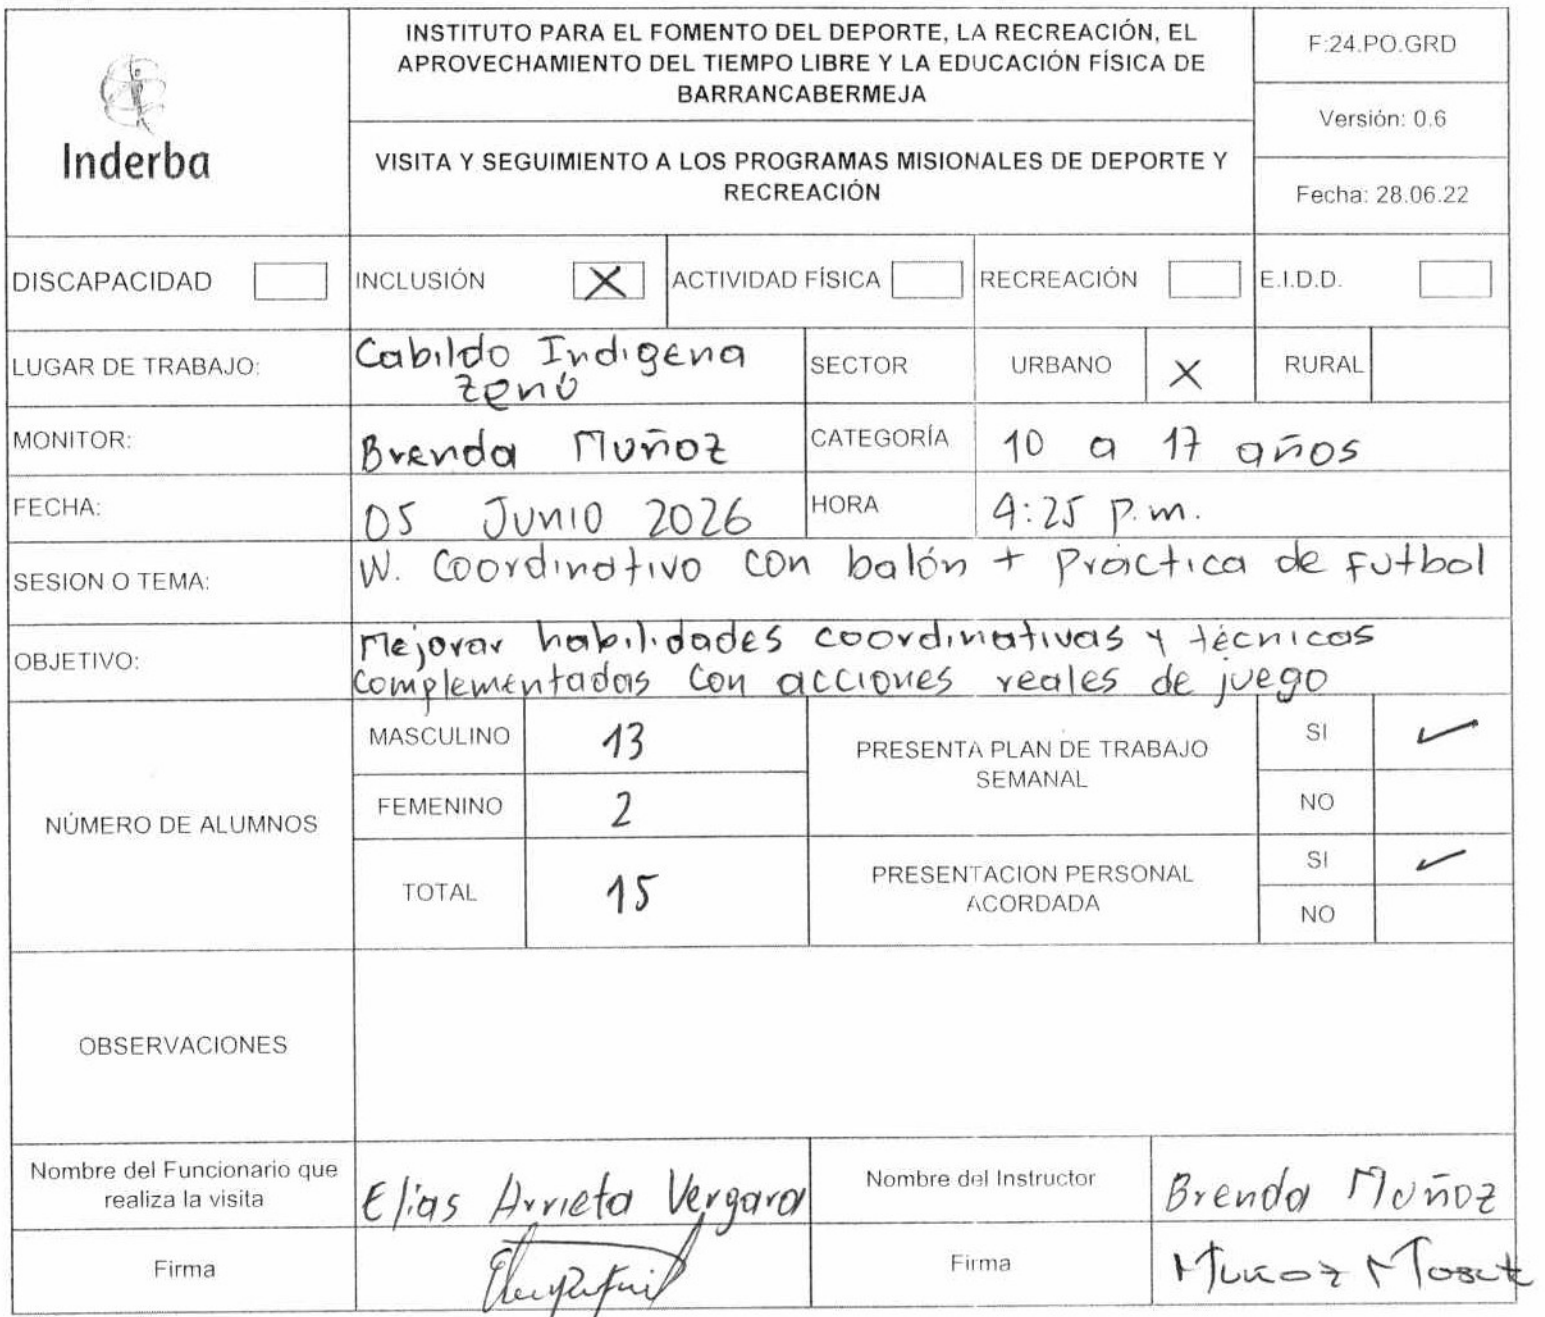 Inderba
INSTITUTO PARA EL FOMENTO DEL DEPORTE, LA RECREACIÓN, EL
APROVECHAMIENTO DEL TIEMPO LIBRE Y LA EDUCACIÓN FÍSICA DE
BARRANCABERMEJA
VISITA Y SEGUIMIENTO A LOS PROGRAMAS MISIONALES DE DEPORTE Y
RECREACIÓN
F:24.PO.GRD
Versión: 0.6
Fecha: 28.06.22
DISCAPACIDAD INCLUSIÓN X ACTIVIDAD FÍSICA RECREACIÓN E.I.D.D.
LUGAR DE TRABAJO: Cabildo Indigena
Zenú
SECTOR URBANO X RURAL
MONITOR: Brenda Muñoz CATEGORÍA 10 a 17 años
FECHA: 05 Junio 2026 HORA 4:25 p.m.
SESION O TEMA: W. Coordinativo con balón + Práctica de Futbol
OBJETIVO: Mejorar habilidades coordinativas y técnicas
complementadas con acciones reales de juego
NÚMERO DE ALUMNOS
MASCULINO 13
FEMENINO 2
TOTAL 15
PRESENTA PLAN DE TRABAJO
SEMANAL
SI ✓
NO
PRESENTACION PERSONAL
ACORDADA
SI ✓
NO
OBSERVACIONES
Nombre del Funcionario que
realiza la visita
Elias Arrieta Vergara
Nombre del Instructor
Brenda Muñoz
Firma
Firma
Muñoz